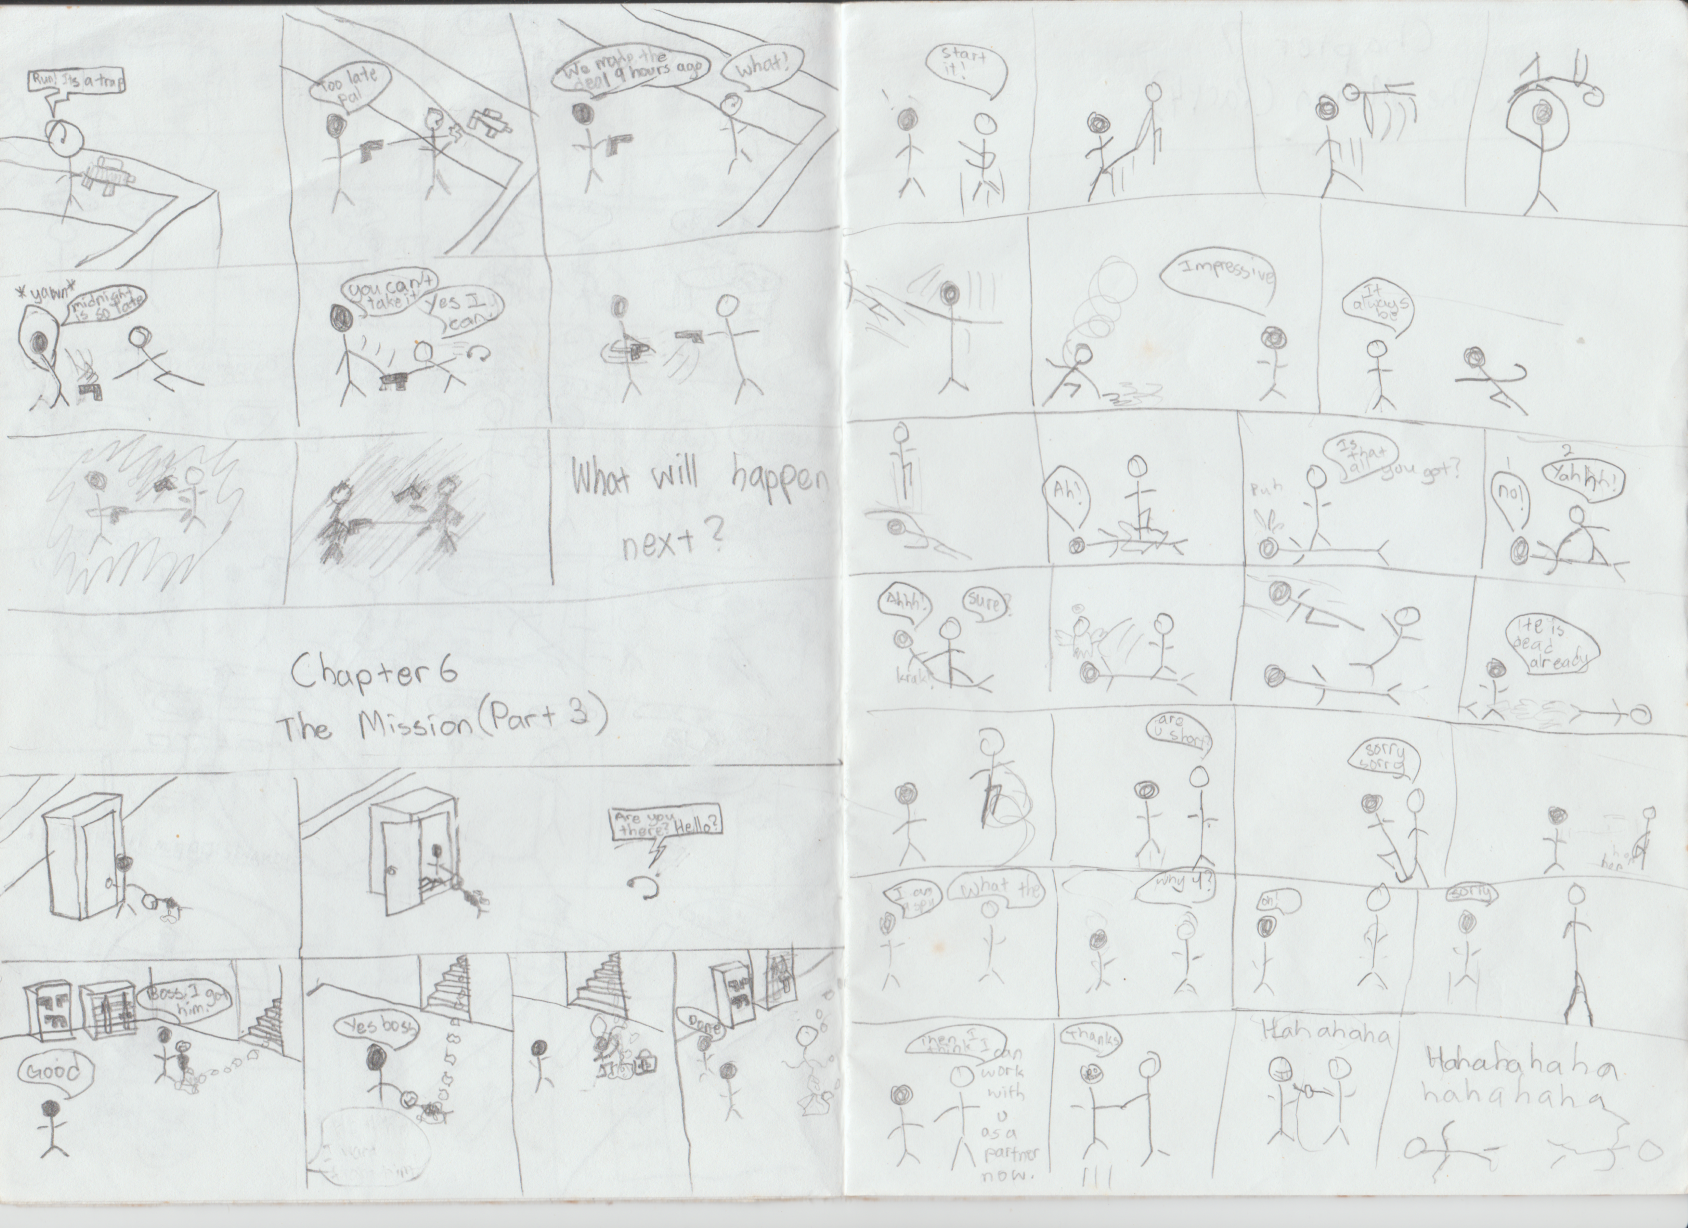 Run! Its a trap
Too late
Pal
We made the
deal 9 hours ago
What!
*yawn*
midnight
is so late
you can't
take it
Yes I
can!
What will happen
next?
Chapter 6
The Mission (Part 3)
Are you
there? Hello?
Boss, I got
him.
Good
Yes boss
Done
start
it!
Impressive
It
always
be
Ah!
Is
that
all you got?
Puh
1
no!
2
Yahhh!
Ahhh!
sure?
krak!
He is
dead
already
are
u short?
sorry
sorry
I am
a spy
What the
why u?
oh!
sorry
Then I
think I can
work
with
u
as a
partner
now.
Thanks
Hahahaha
Hahahahaha
hahahaha